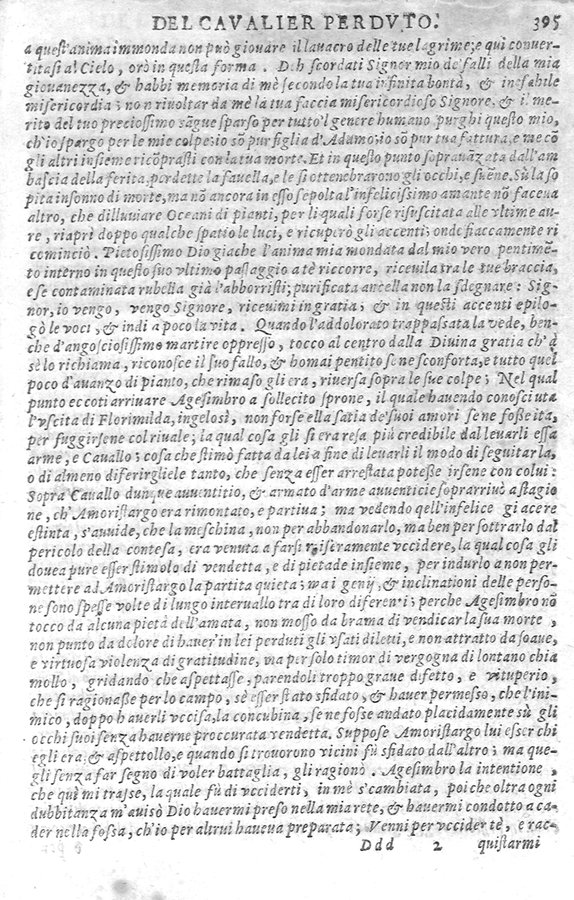 DEL CAVALIER PERDVTO. 395
a quest'anima immonda non può giouare il lauacro delle tue lagrime; e quì conuer-
titasi al Cielo, orò in questa forma. Deh scordati Signor mio de' falli della mia
giouanezza, & habbi memoria di mè secondo la tua infinita bontà, & inefabile
misericordia; non riuoltar da mè la tua faccia misericordioso Signore, & il me-
rito del tuo preciossimo sãgue sparso per tutto'l genere humano purghi questo mio,
ch'io spargo per le mie colpe; io sõ pur figlia d'Adamo; io sõ pur tua fattura, e me cõ
gli altri insieme ricõprasti con la tua morte. Et in questo punto soprauãzata dall'am
bascia della ferita, perdette la fauella, e le si ottenebrarono gli occhi, e suẽne. Sù la so
pita in sonno di morte, ma nõ ancora in esso sepolta l'infelicissimo amante nõ faceua
altro, che dilluuiare Oceani di pianti, per li quali forse risuscitata alle vltime au-
re, riaprì doppo qualche spatio le luci, e ricuperò gli accenti; onde fiaccamente ri
cominciò. Pietosissimo Dio giache l'anima mia mondata dal mio vero pentimẽ-
to interno in questo suo vltimo passaggio a tè ricorre, riceuila tra le tue braccia,
e se contaminata rubella già l'abborristi; purificata ancella non la sdegnare: Sig-
nor, io vengo, vengo Signore, riceuimi in gratia; & in questi accenti epilo-
gò le voci, & indi a poco la vita. Quando l'addolorato trappassata la vede, ben-
che d'angosciosissimo martire oppresso, tocco al centro dalla Diuina gratia ch'à
sè lo richiama, riconosce il suo fallo, & homai pentito se ne sconforta, e tutto quel
poco d'auanzo di pianto, che rimaso gli era, riuersa sopra le sue colpe; Nel qual
punto eccoti arriuare Agesimbro a sollecito sprone, il quale hauendo conosciuta
l'vscita di Florimilda, ingelosì, non forse ella satia de' suoi amori se ne fosse ita,
per fuggirsene col riuale; la qual cosa gli si era resa più credibile dal leuarli essa
arme, e Cauallo; cosa che stimò fatta da lei a fine di leuarli il modo di seguitarla,
o di almeno diferirgliele tanto, che senza esser arrestata potesse irsene con colui:
Sopra Cauallo dunque auuentitio, & armato d'arme auuenticie soprarriuò a stagio
ne, ch'Amoristargo era rimontato, e partiua; ma vedendo quell'infelice giacere
estinta, s'auuide, che la meschina, non per abbandonarlo, ma ben per sottrarlo dal
pericolo della contesa, era venuta a farsi miseramente vccidere, la qual cosa gli
douea pure esser stimolo di vendetta, e di pietade insieme, per indurlo a non per-
mettere ad Amoristargo la partita quieta; ma i genij, & inclinationi delle perso-
ne sono spesse volte di lungo interuallo tra di loro diferenti; perche Agesimbro nõ
tocco da alcuna pietà dell'amata, non mosso da brama di vendicar la sua morte,
non punto da dolore di hauer' in lei perduti gli vsati diletti, e non attratto da soaue,
e virtuosa violenza di gratitudine, ma per solo timor di vergogna di lontano chia
mollo, gridando che aspettasse, parendoli troppo graue difetto, e vituperio,
che si ragionasse per lo campo, sè esser stato sfidato, & hauer permesso, che l'ini-
mico, doppo hauerli vccisa, la concubina, se ne fosse andato placidamente sù gli
occhi suoi senza hauerne proccurata vendetta. Suppose Amoristargo lui esser chi
egli era, & aspettollo, e quando si trouorono vicini fù sfidato dall'altro; ma que-
gli senza far segno di voler battaglia, gli ragionò. Agesimbro la intentione,
che quì mi trasse, la quale fù di vcciderti, in mè s'cambiata, poi che oltra ogni
dubbitanza m'auisò Dio hauermi preso nella mia rete, & hauermi condotto a ca-
der nella fossa, ch'io per altrui haueua preparata; Venni per vccider tè, e rac-
Ddd 2 quistarmi